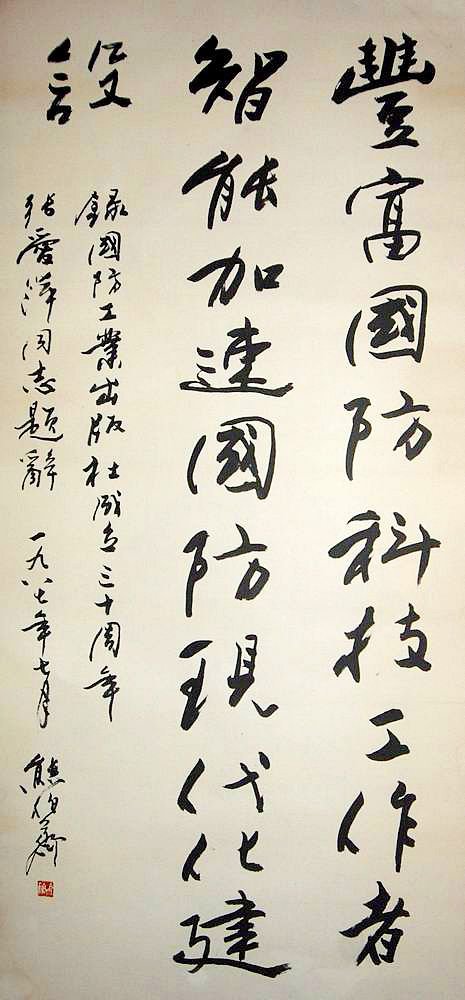 豐富國防科技工作者
智能加速國防現代化建
設
錄國防工業出版社成立三十周年
張愛萍同志題辭 一九八七年七月 熊伯齡